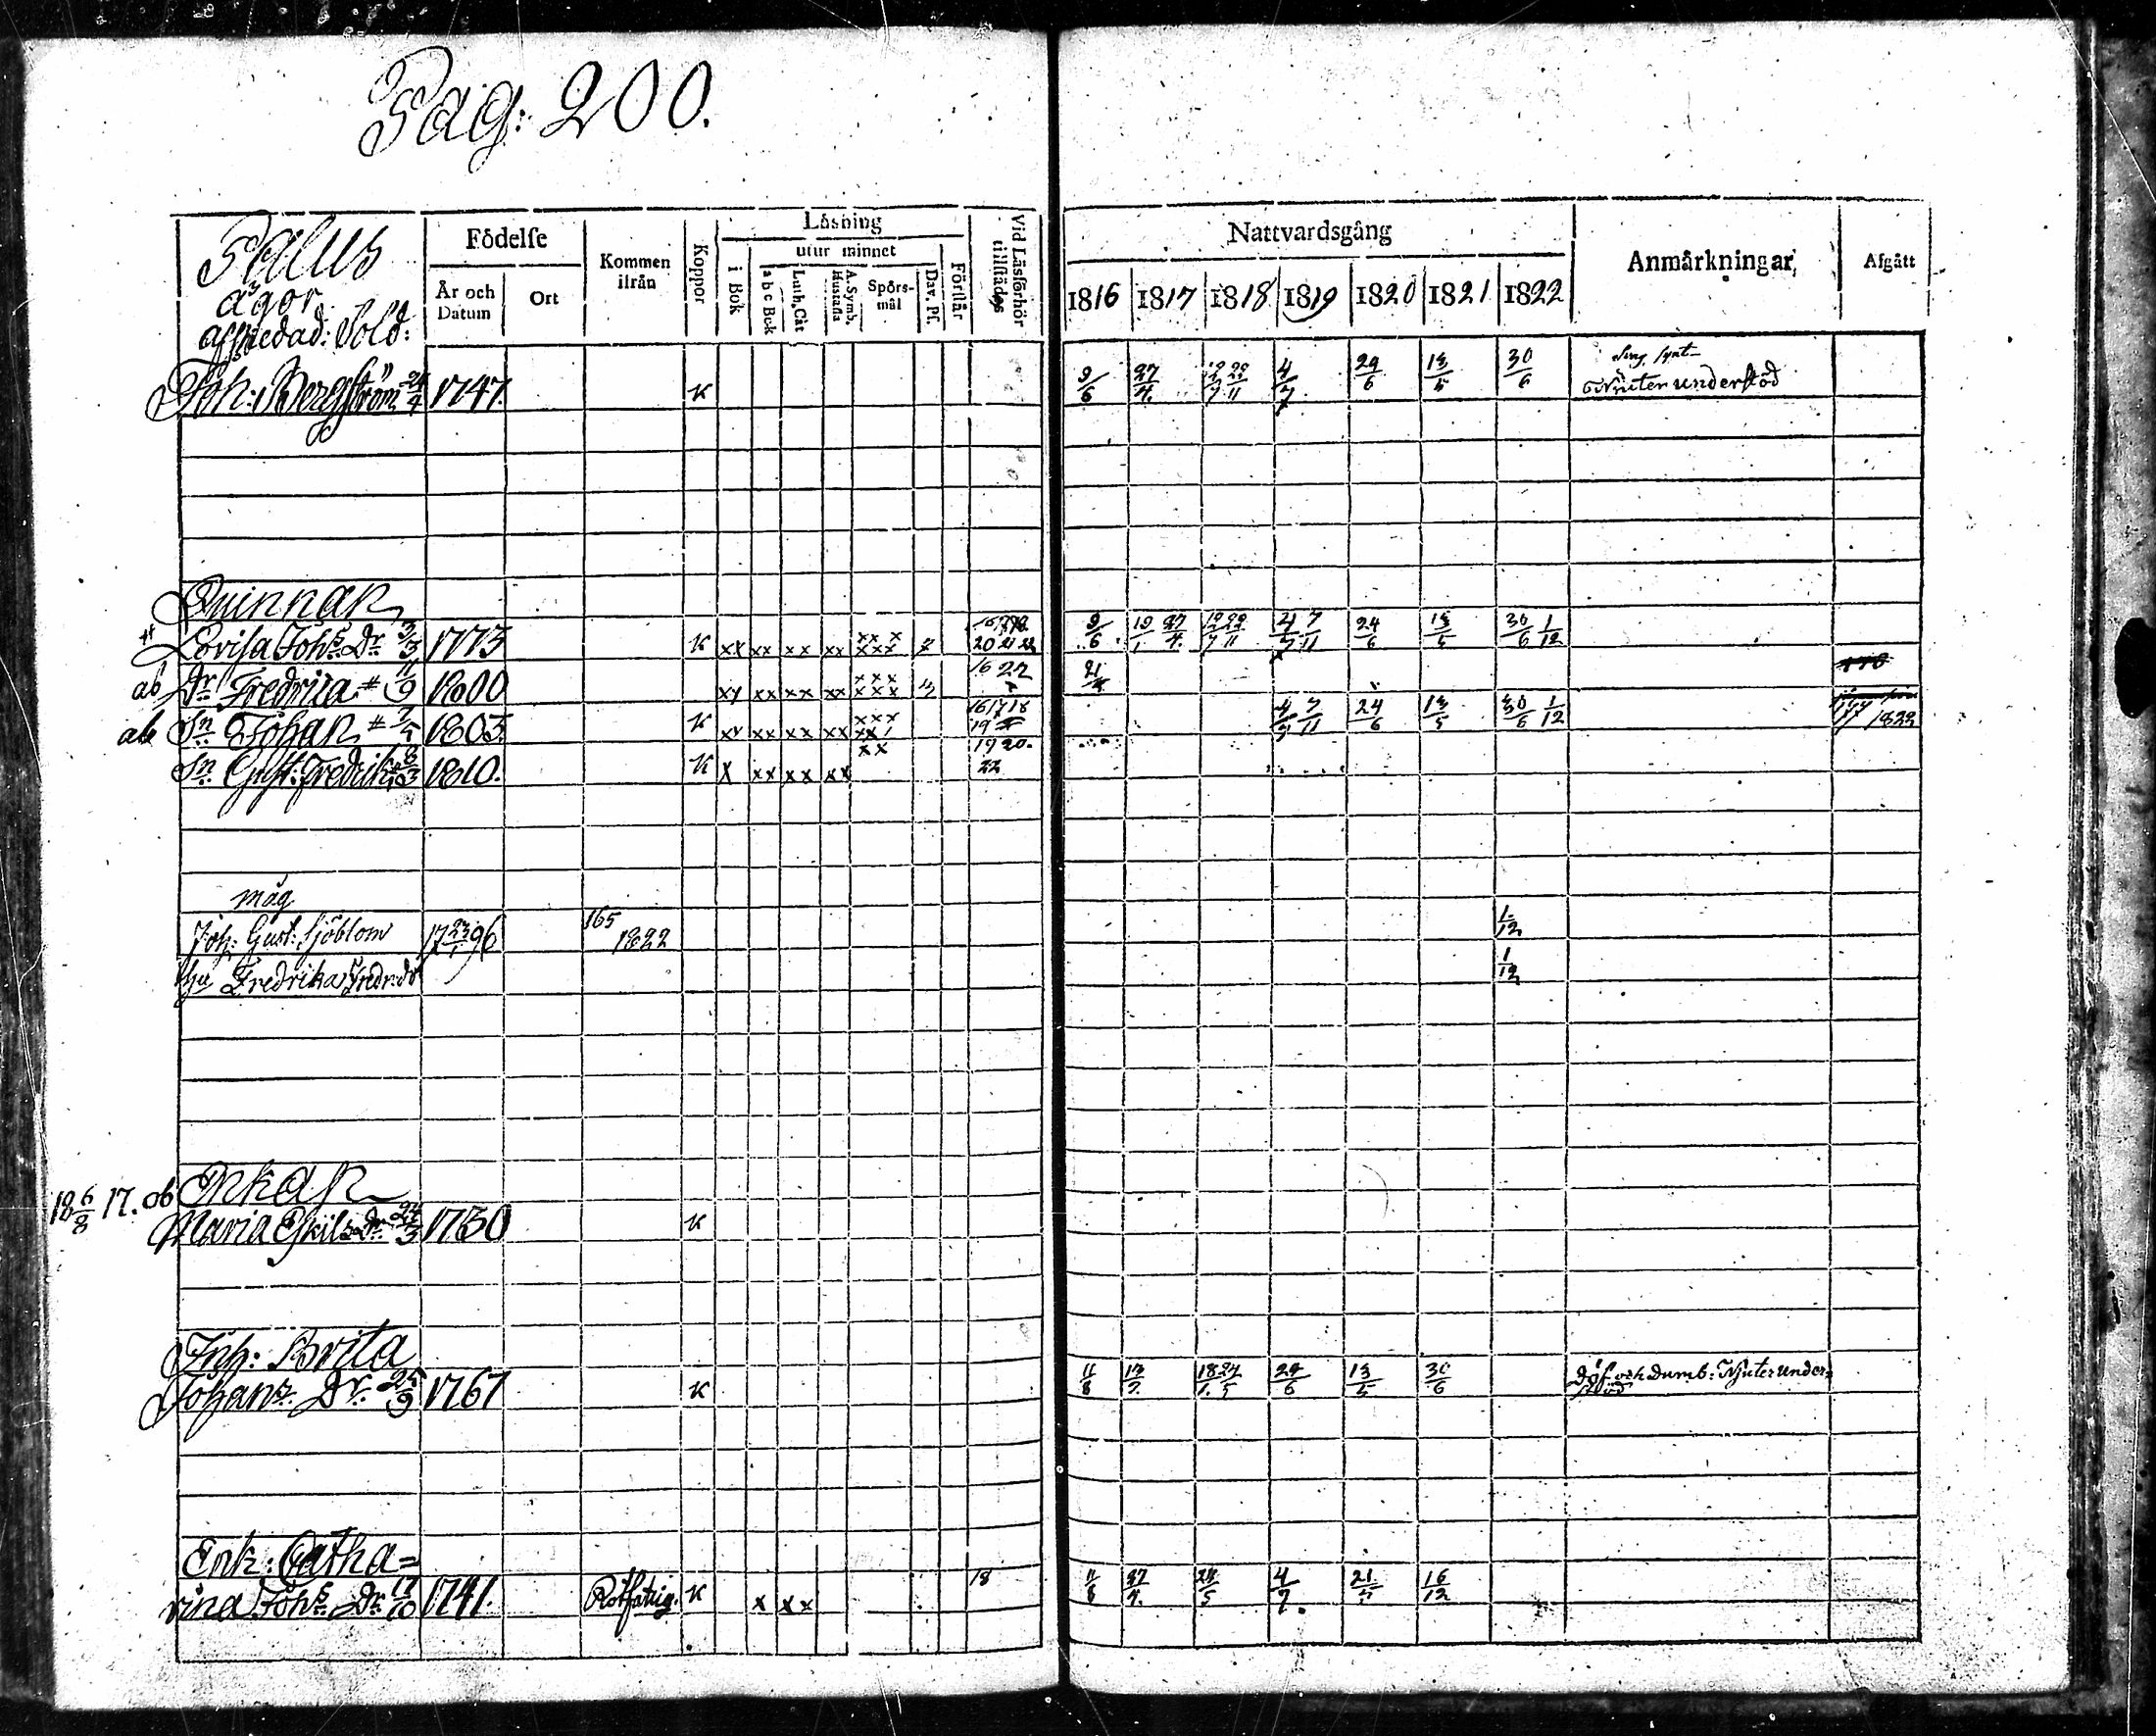 Pag: 200.
Palus
ägor
Födelse
År och Datum
Ort
Kommen ifrån
Koppor
Läsning
i Bok
utur minnet
a b c Bok
Luth. Cat
A. Symb. Hustafla
Spörsmål
Dav. Ps.
Förstår
Vid Läsförhör tillstädes
Nattvardsgång
1816 1817 1818 1819 1820 1821 1822
Anmärkningar
Afgått
afskedad: Sold:
Joh: Bergström 24/4 1747. K 9/6 27/4 12/7 22/11 4/7 24/6 13/5 30/6 Njuter understöd
Quinnan
Lovisa Johs Dr 3/3 1773 K xx xx xx xx xx x xxx 20 21 22 9/6 27/4 12/7 22/11 4/7 7/11 24/6 13/5 30/6 1/12
ab Dr Fredrica 11/9 1800 xx xx xx xx xxx xxx 16 22 21/4
ab Sn Johan 1803 K xx xx xx xx xxx 16 17 18 19 4/7 7/11 24/6 13/5 30/6 1/12 1822
Sn Gust: Fredrik 1810. K x xx xx xx xx 19 20. 22
måg
Joh: Gust: Sjöblom 17 23/1 96 165 1822 1/12
hu Fredrika Fredr: dr 1/12
18 6/8 17. ob Enkan
Maria Eskils Dr 24/3 1750 K
Inh: Brita
Johans Dr 25/9 1767 K 11/8 24/6 13/5 30/6 Döf och Dumb: Njuter under=
stöd
Enk: Catha=
rina Johs Dr 17/10 1741. Rotfattig. K x xx 18 11/8 27/4 24/5 4/7 16/12